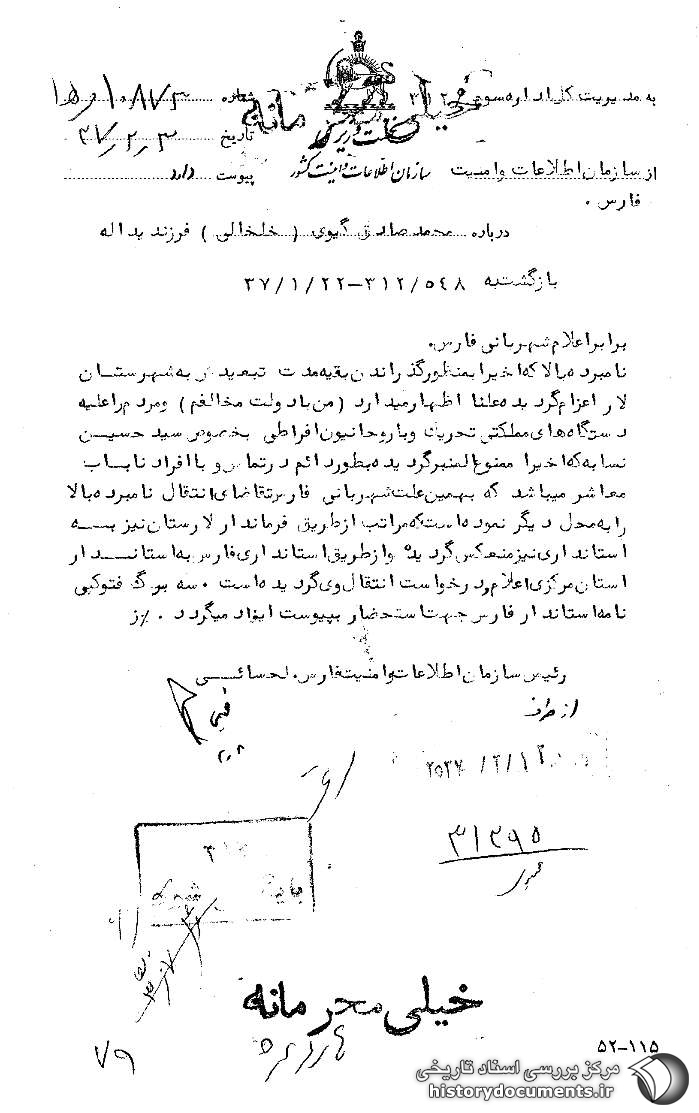 خیلی محرمانه
به مدیریت کل اداره سوم ۳۱۲
شماره ۱۵۱۰۸۷۳
نخست وزیری
تاریخ ۳۷/۲/۳
از سازمان اطلاعات و امنیت
سازمان اطلاعات و امنیت کشور
پیوست دارد
فارس .
درباره محمد صادق گیوی ( خلخالی ) فرزند یداله
بازگشت به ۳۱۲/۵۴۸-۳۷/۱/۲۲
برابر اعلام شهربانی فارس.
نامبرده بالا که اخیرا بمنظور گذراندن بقیه مدت تبعیدش به شهرستان
لار اعزام گردیده علنا اظهار میدارد ( من با دولت مخالفم ) و مردم را علیه
دستگاه های مملکتی تحریک و با روحانیون افراطی بخصوص سید حسین
نسابه که اخیرا ممنوع المنبر گردیده بطور دائم در تماس و با افراد ناباب
معاشر میباشد که بهمین علت شهربانی فارس تقاضای انتقال نامبرده بالا
را به محل دیگر نموده است که مراتب از طریق فرماندار لارستان نیز بسه
استانداری نیز منعکس گردیده و از طریق استانداری فارس به استاندار
استان مرکزی اعلام و درخواست انتقال وی گردیده است . سه برگ فتوکپی
نامه استاندار فارس جهت استحضار بپیوست ایفاد میگردد . %ز
رئیس سازمان اطلاعات و امنیت فارس. لحسائی
از طرف
۲۵۳۷/۲/۱۲
۳۱۲۹۵
۳۱۲
بایگانی شود
خیلی محرمانه
۷۹
۵۲-۱۱۵
مرکز بررسی اسناد تاریخی
historydocuments.ir